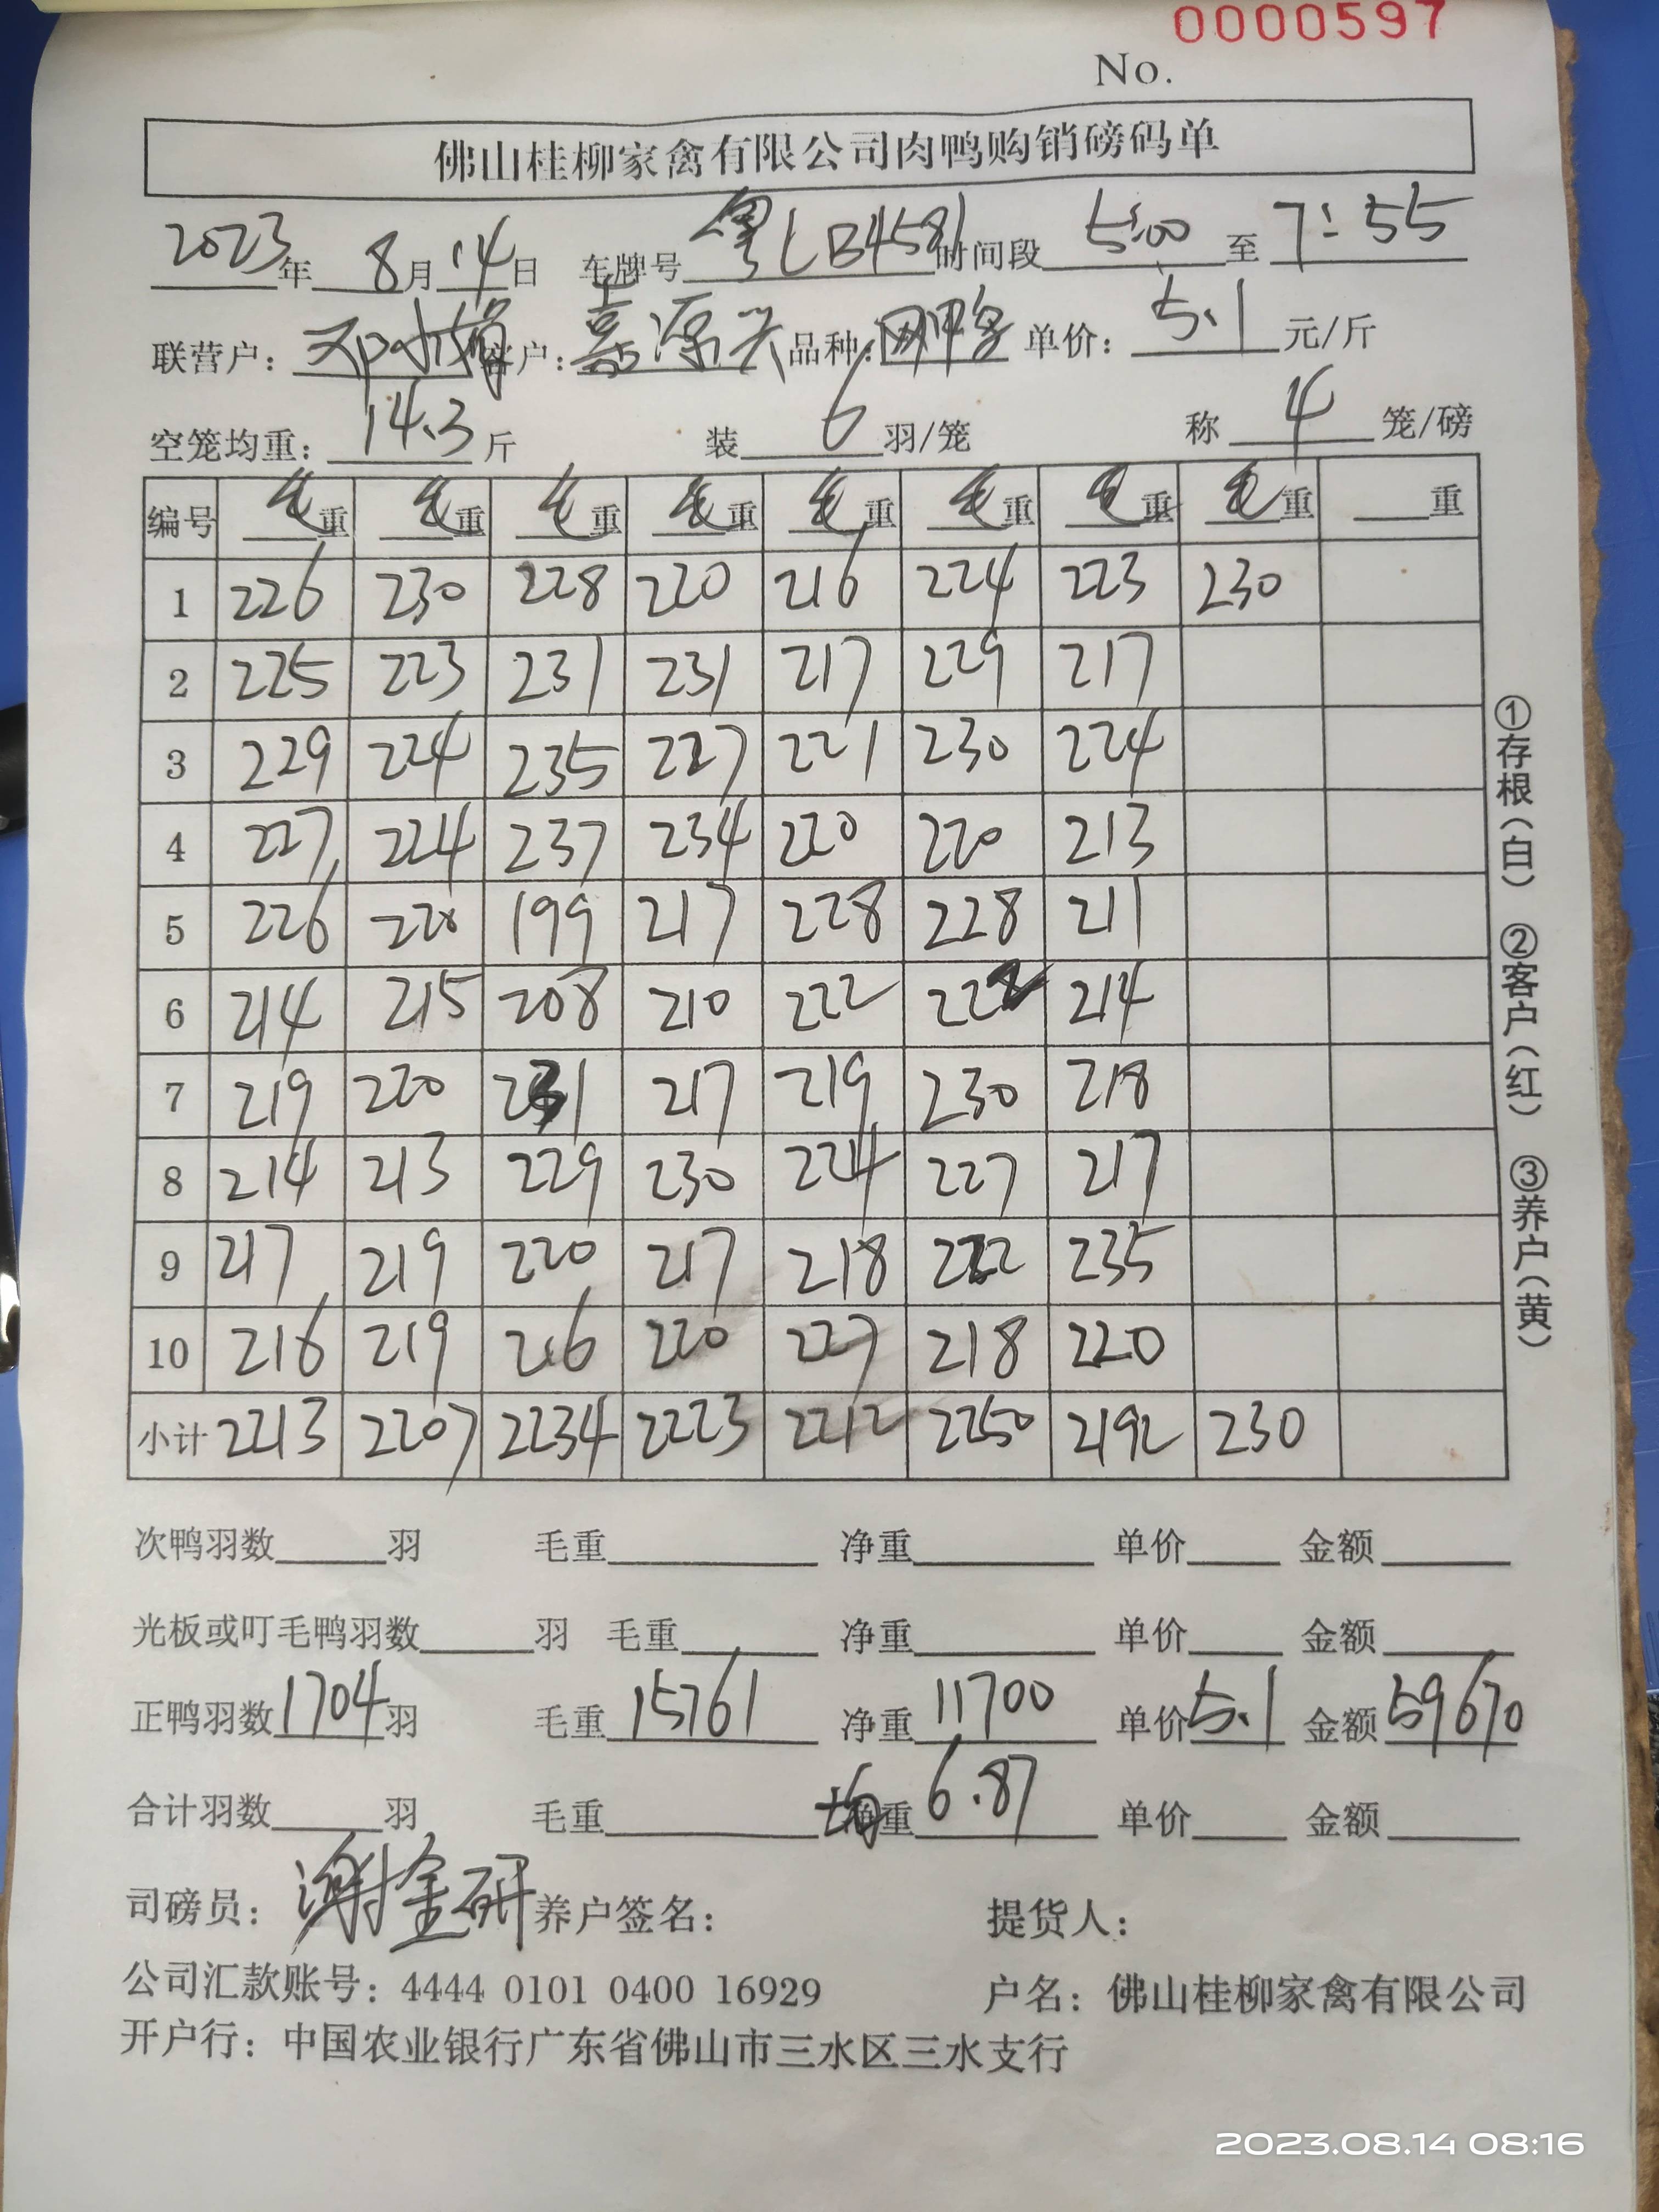 0000597
No.
佛山桂柳家禽有限公司肉鸭购销磅码单
2023年 8月 14日 车牌号 粤LB4581 时间段 5:00 至 7:55
联营户: 邓小 客户: 嘉源兴 品种: 网鸭 单价: 5.1 元/斤
空笼均重: 14.3 斤 装 6 羽/笼 称 4 笼/磅
编号 毛重 毛重 毛重 毛重 毛重 毛重 毛重 毛重 重
1 226 230 228 220 216 224 223 230
2 225 223 231 231 217 229 217
3 229 224 235 227 221 230 224
4 227 224 237 234 220 220 213
5 226 220 199 217 228 228 211
6 214 215 208 210 222 222 214
7 219 220 231 217 219 230 218
8 214 213 229 230 224 227 217
9 217 219 220 217 218 222 235
10 216 219 216 220 227 218 220
小计 2213 2207 2234 2223 2212 2250 2192 230
①存根(白) ②客户(红) ③养户(黄)
次鸭羽数 羽 毛重 净重 单价 金额
光板或叮毛鸭羽数 羽 毛重 净重 单价 金额
正鸭羽数 1704 羽 毛重 15761 净重 11700 单价 5.1 金额 59670
合计羽数 羽 毛重 均重 6.87 单价 金额
司磅员: 谢金研 养户签名: 提货人:
公司汇款账号: 4444 0101 0400 16929 户名: 佛山桂柳家禽有限公司
开户行: 中国农业银行广东省佛山市三水区三水支行
2023.08.14 08:16